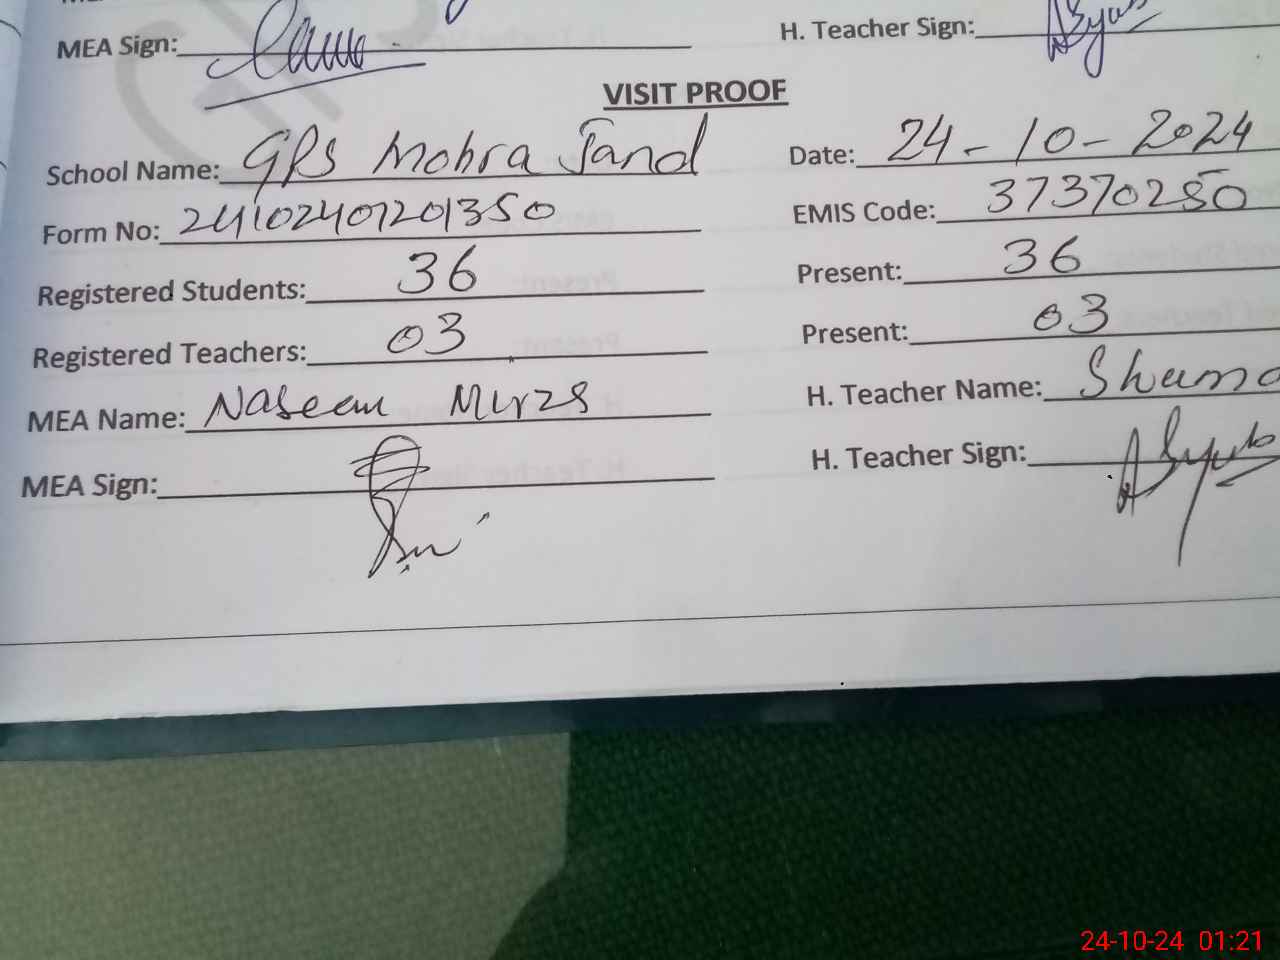 MEA Sign: H. Teacher Sign:
VISIT PROOF
School Name: GPS Mohra Jand Date: 24-10-2024
Form No: 24102401201350 EMIS Code: 37370250
Registered Students: 36 Present: 36
Registered Teachers: 03 Present: 03
MEA Name: Naseem Mirza H. Teacher Name:
MEA Sign: H. Teacher Sign:
24-10-24 01:21